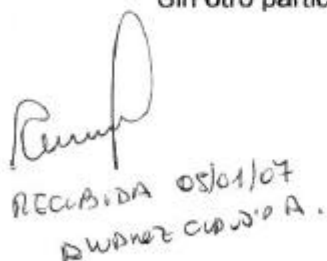 Sin otro partic
RECIBIDA 05/01/07
ALVAREZ CLAUDIO A.